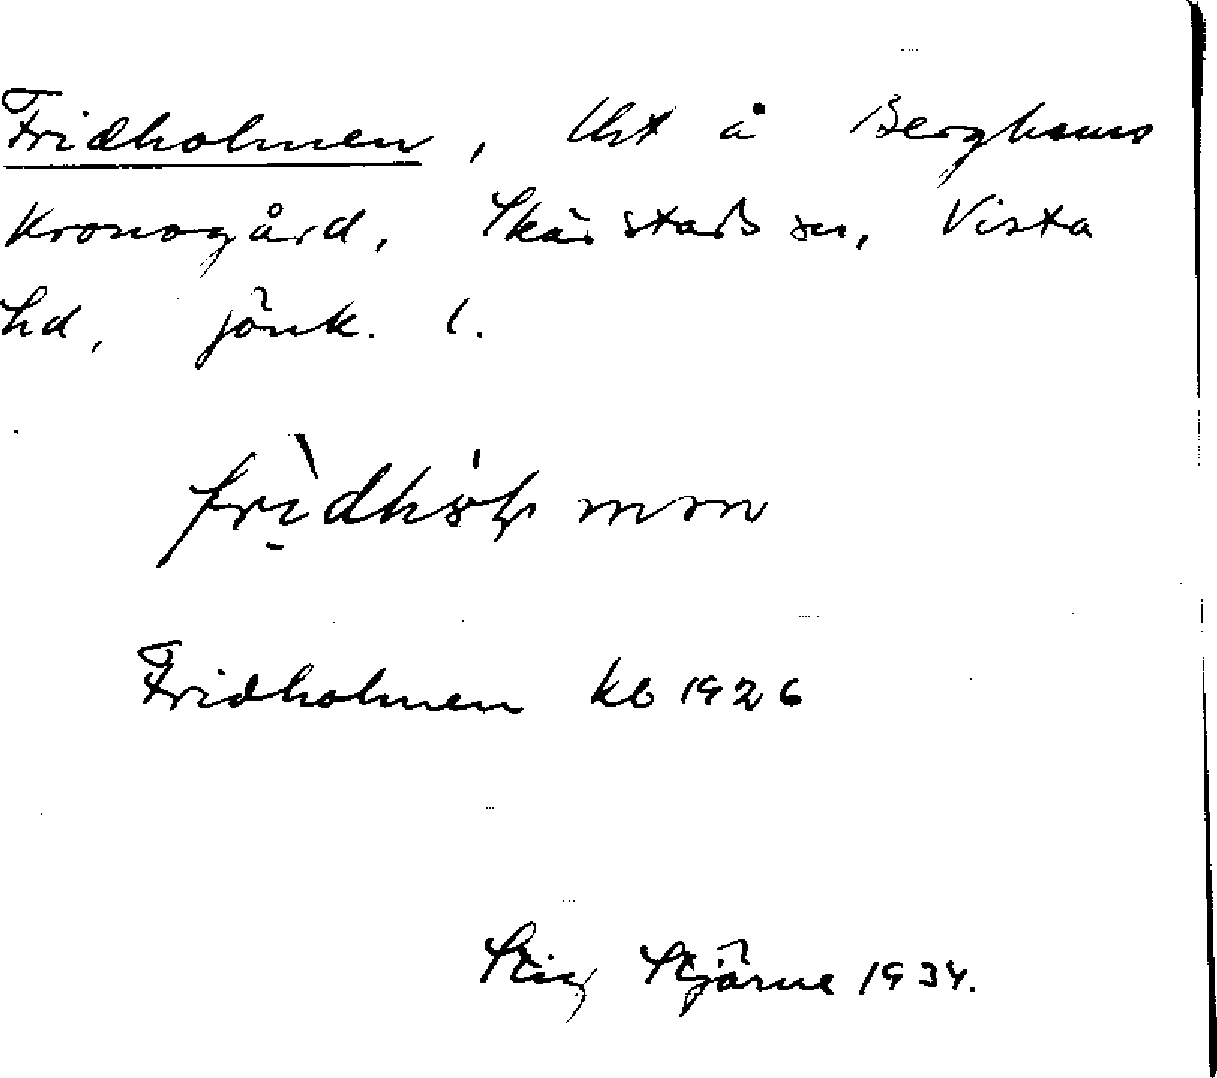 Fridholmen, lht å Berghems
Kronogård, Skärstads sn, Vista
hd, Jönk. l.
Fridholmen kb 1926
Stig Stjärne 1934.